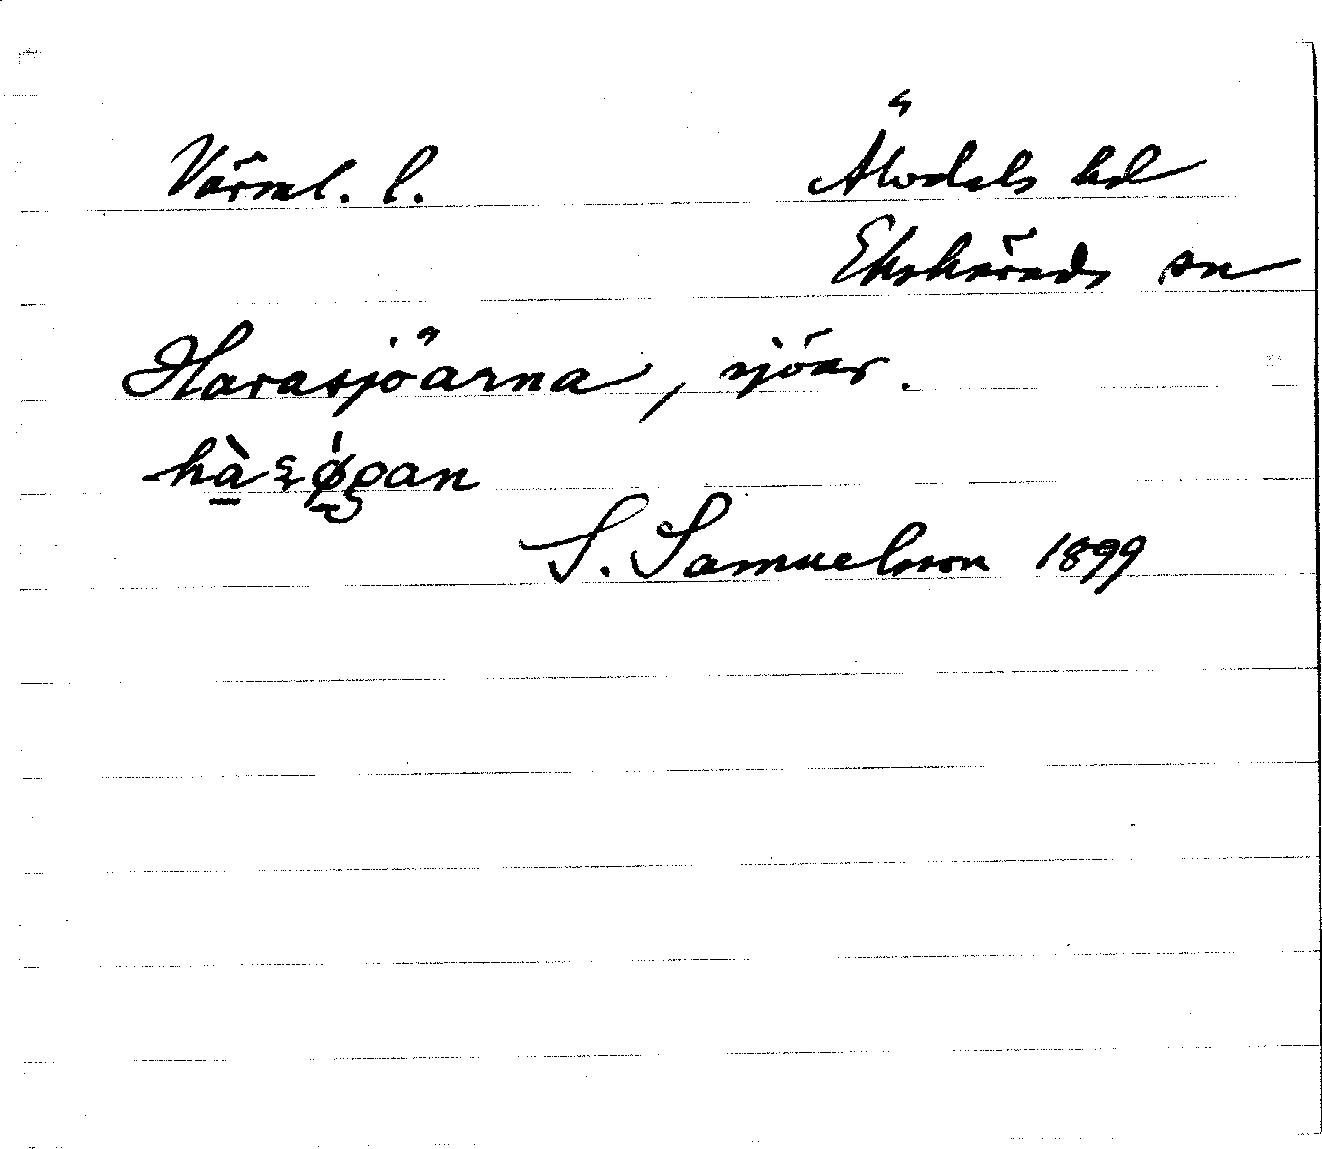 Värml. l.
Älvdals hd
Ekshärads sn
Harasjöarna, sjöar.
S. Samuelsson 1899